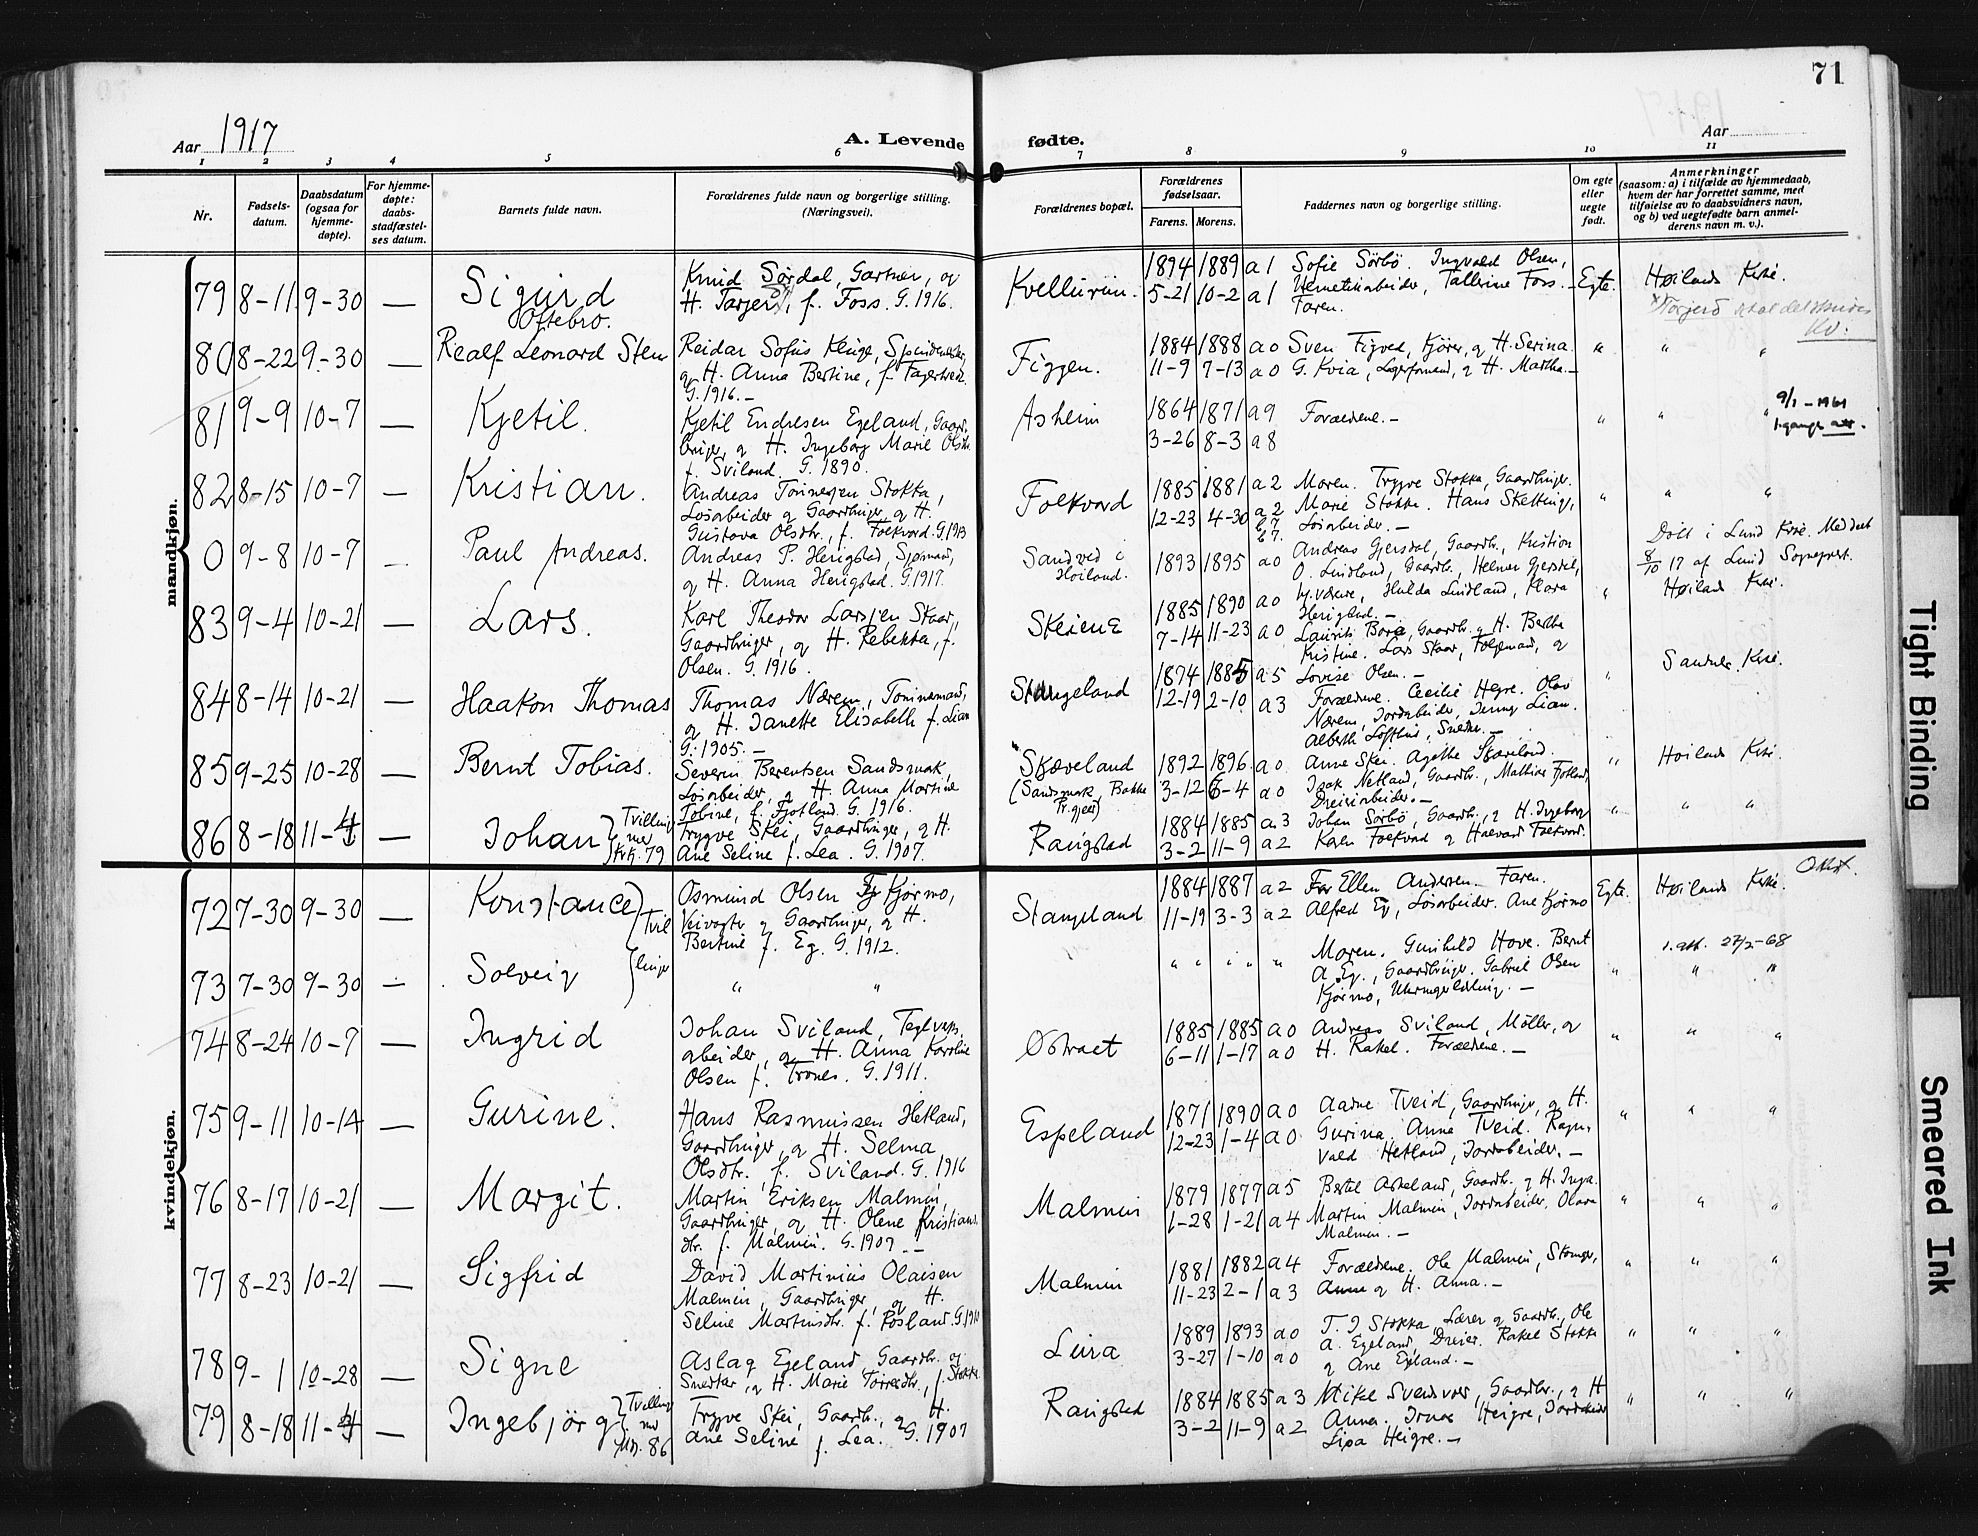 71
Aar 1917
A. Levende
fødte.
Aar
1 2 3 4 5 6 7 8 9 10 11
Nr.
Fødsels-
datum.
Daabsdatum
(ogsaa for
hjemme-
døpte).
For hjemme-
døpte:
daabs-
stadfæstel-
ses datum.
Barnets fulde navn.
Forældrenes fulde navn og borgerlige stilling.
(Næringsvei).
Forældrenes bopæl.
Forældrenes
fødselsaar.
Farens. Morens.
Faddernes navn og borgerlige stilling.
Om egte
eller
uegte
født.
Anmerkninger
(saasom: a) i tilfælde av hjemmedaab,
hvem der har forrettet samme, med
tilføielse av to daabsvidners navn,
og b) ved uegtefødte barn anmel-
derens navn m. v.).
mandkjøn.
79 8-11 9-30 — Sigurd
Oftebro.
Knud Sørdal, Gartner, og
f. Foss. G. 1916.
1894 1889 a 1 Sofie Sörbö. Ingvald Olsen,
5-21 10-2 a 1
Faren.
Egte. Høilands Kirke.
80 8-22 9-30 — Realf Leonard Sten
Reidar Sofus Kluge,
og H. Anna Bertine, f.
G. 1916.—
Figgen.
1884 1888 a 0 Sven Figved, Kjører, og H. Serina.
11-9 7-13 a 0 G. Kvia, og H. Martha.—
" " "
81 9-9 10-7 — Kjetil.
Kjetil Endresen Egeland, Gaard-
bruger, og H. Ingeborg Marie Olsdtr.
f. Sviland. G. 1890.
Asheim
1864 1871 a 9 Forældrene.—
3-26 8-3 a 8
" " "
9/1-1961
1. gangs att.
82 8-15 10-7 — Kristian.
Andreas Tönnesen Stokka,
Løsarbeider og Gaardbruger, og H.
Gustava Olsdtr., f. Folkvord. G. 1913
Folkvord
1885 1881 a 2 Moren. Trygve Stokka, Gaardbruger.
12-23 4-30 a 2 Marie Stokka. Hans Sketting,
b 7. Løsarbeider.—
" " "
0 9-8 10-7 — Paul Andreas.
Andreas P. Herigstad, Sjømand,
og H. Anna Herigstad. G. 1917.
Sandved i
Høiland.
1893 1895 a 0 Andreas Gjersdal, Gaardbr., Kristian
O. Lindland, Gaardbr., Helmer Gjersdal,
Hulda Lindland, Klara
Herigstad.—
Døbt i Lund Kirke. Meddelt
8/10 17 af Lund Sogneprest.
83 9-4 10-21 — Lars.
Karl Theodor Larsen Staar,
Gaardbruger, og H. Rebekka, f.
Olsen. G. 1916.
Skeiene
1885 1890 a 0
7-14 11-23 a 0 Laurits Borg, Gaardbr. og H. Bertha
Kristine. Lars Staar, og
Lovise Olsen.—
" Høilands Kirke.
84 8-14 10-21 — Haakon Thomas
Thomas Nærem,
og H. Janette Elisabeth f. Lian
G. 1905.—
Stangeland
1874 1885 a 5
12-19 2-10 a 3 Forældrene. Cecilie Hegre. Olav
Nærem, Jordarbeider, Jenny Lian.
Alberth Lofthus, Snedker.—
" Sandnes Kirke.
85 9-25 10-28 — Bernt Tobias.
Severin Berentsen Sandsmark,
Løsarbeider, og H. Anna Martine
Tobine, f. Fjotland. G. 1916.
Skjæveland
(Sandsmark, Bakke
Pr.gjeld)
1892 1896 a 0 Anne Skei. Agathe Skæveland.
3-12 6-4 a 0 Isak Netland, Gaardbr., Mathias Fjotland,
Dreierarbeider.—
" Høilands Kirke.
86 8-18 11-4 — Johan } Tvilling
med
Kvk. 79
Trygve Skei, Gaardbruger, og H.
Ane Seline f. Lea. G. 1907.
Raugstad
1884 1885 a 3 Johan Sørbö, Gaardbr., og H. Ingeborg
3-2 11-9 a 2 Karen Folkvord og Halvard Folkvord.
" " "
kvindekjøn.
72 7-30 9-30 — Konstance } Tvil
Osmund Olsen Kjørmo,
Veivogter og Gaardbruger, og H.
Bertine f. Eg. G. 1912.
Stangeland
1884 1887 a 2 Ellen Andersen. Faren.
11-19 3-3 a 2 Alfred Eg, Løsarbeider. Ane Kjørmo
Egte. Høilands Kirke.
73 7-30 9-30 — Solveig } linger
" "
" " " " " Moren. Gunhild Hove. Bernt
A. Eg., Gaardbruger. Gabriel Olsen
Kjørmo, —
1. att. 27/2-68
" " "
74 8-24 10-7 — Ingrid
Johan Sviland, Teglverks-
arbeider, og H. Anna Karoline
Olsen f. Trones. G. 1911.
Østraet
1885 1885 a 0 Andreas Sviland, Möller, og
6-11 1-17 a 0 H. Rakel. Forældrene.—
" " "
75 9-11 10-14 — Gurine.
Hans Rasmussen Hetland,
Gaardbruger, og H. Selma
Olsdtr., f. Sviland. G. 1916
Espeland
1871 1890 a 0 Aadne Tveid, Gaardbruger, og H.
12-23 1-4 a 0 Gurina. Anna Tveid. Ragn-
vald Hetland, Jordarbeider.—
" " "
76 8-17 10-21 — Margit.
Martin Eriksen Malmin,
Gaardbruger, og H. Olene Kristians-
dtr. f. Malmin. G. 1907.—
Malmin
1879 1877 a 5 Bertel Askeland, Gaardbr. og H. Inga.
1-28 1-21 a 4 Martin Malmin, Jordarbeider. Olava
Malmin.—
" " "
77 8-23 10-21 — Sigfrid
David Martinius Olaisen
Malmin, Gaardbruger, og H.
Seline Martinsdtr. f. Røsland. G. 1910
Malmin
1881 1882 a 4 Forældrene. Ole Malmin,
11-23 2-1 a 3 og H. Anna.—
" " "
78 9-1 10-28 — Signe
Aslag Egeland, Gaardbr. og
Snedker, og H. Marie Torresdtr., f. Stokka
Leira
1889 1893 a 0 T. J. Stokka, Lærer og Gaardbr., Ole
3-27 1-10 a 0 A. Egeland, Dreier. Rakel Stokka
og Ane Egeland.—
" " "
79 8-18 11-4 — Ingebjörg } Tvilling
med
Mk. 86
Trygve Skei, Gaardbr., og H.
Ane Seline f. Lea. G. 1907
Raugstad
1884 1885 a 3 Mikal Svendsvoll, Gaardbr., og H
3-2 11-9 a 2 Anna. Jonas Heigre, Jordarbeider
Lisa Heigre.—
" " "
Tight Binding
Smeared Ink